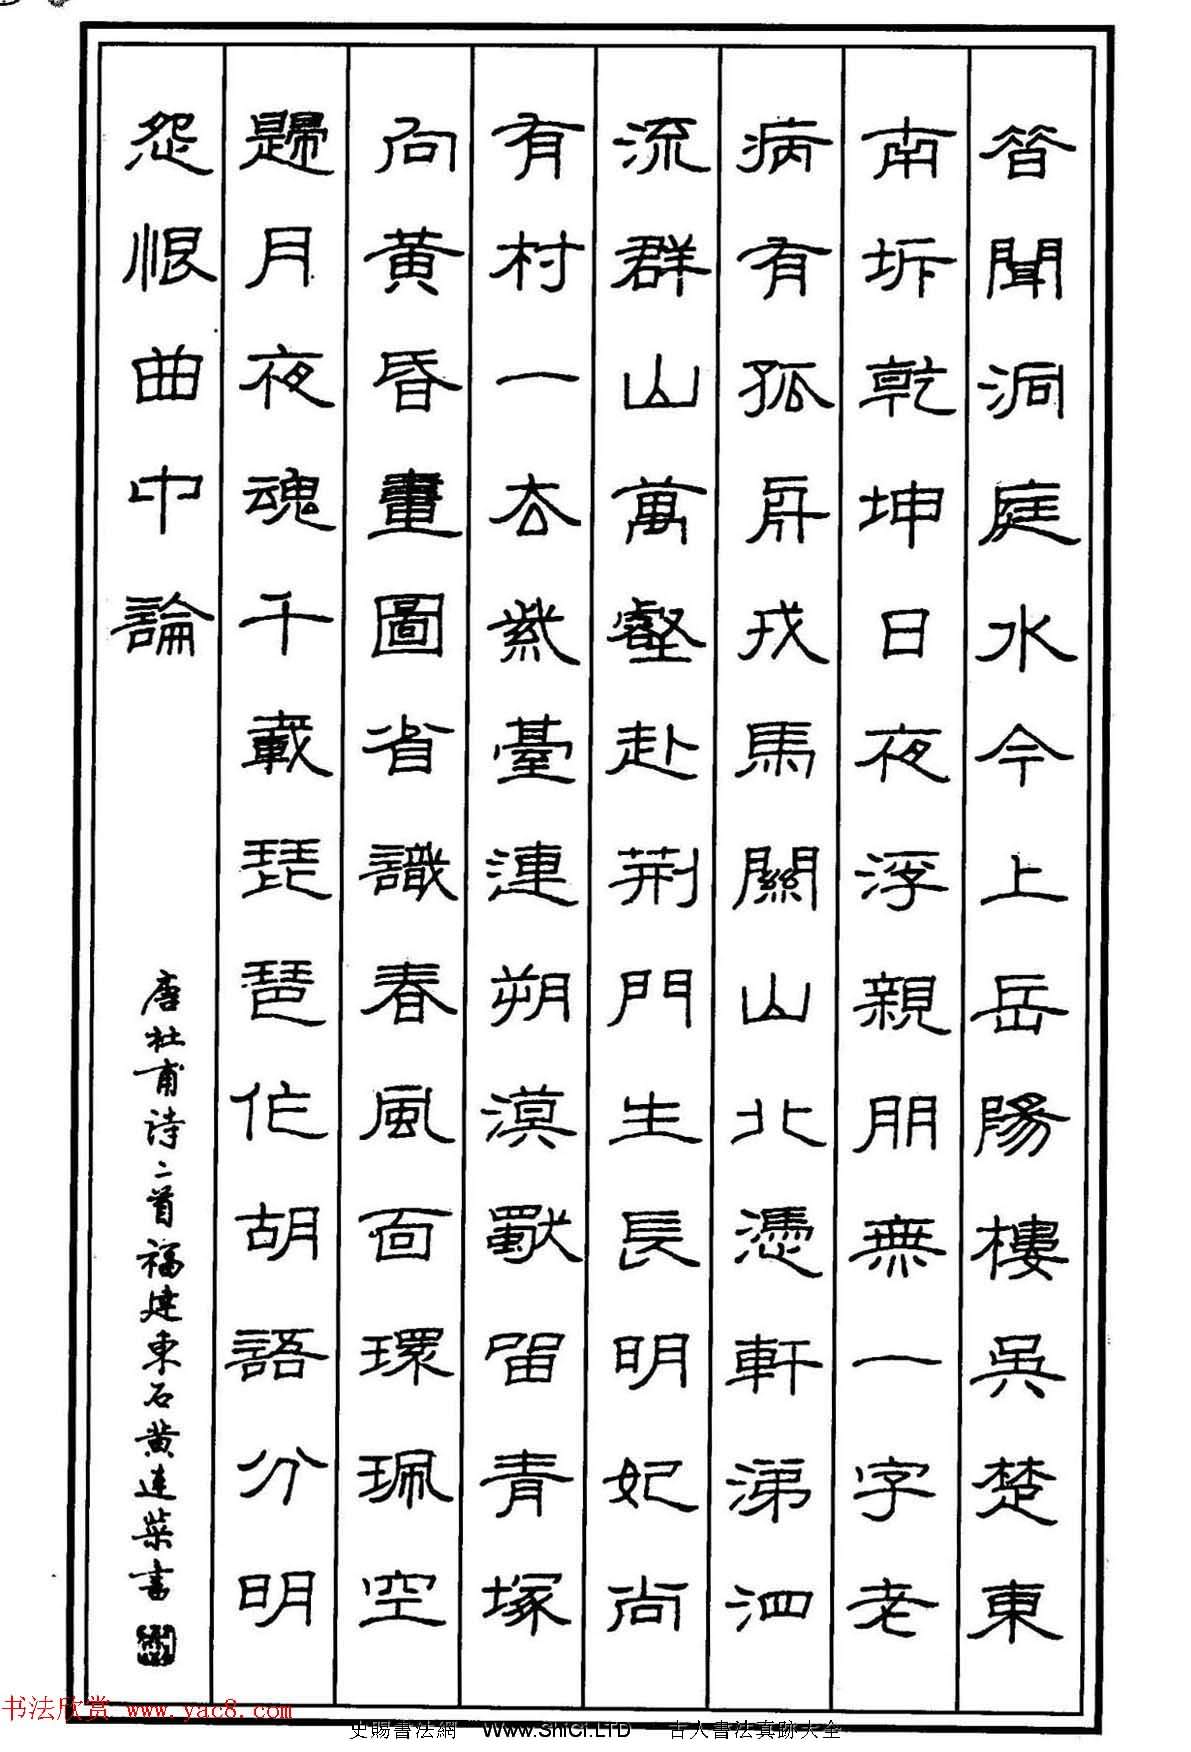 昔聞洞庭水今上岳陽樓吳楚東
南坼乾坤日夜浮親朋無一字老
病有孤舟戎馬關山北憑軒涕泗
流群山萬壑赴荆門生長明妃尚
有村一去紫臺連朔漠獨留青塚
向黃昏畫圖省識春風面環珮空
歸月夜魂千載琵琶作胡語分明
怨恨曲中論
唐杜甫诗二首福建東石黄连荣書
书法欣赏 www.yac8.com
史賜書法網 Www.ShiCi.LTD 古人書法真跡大全